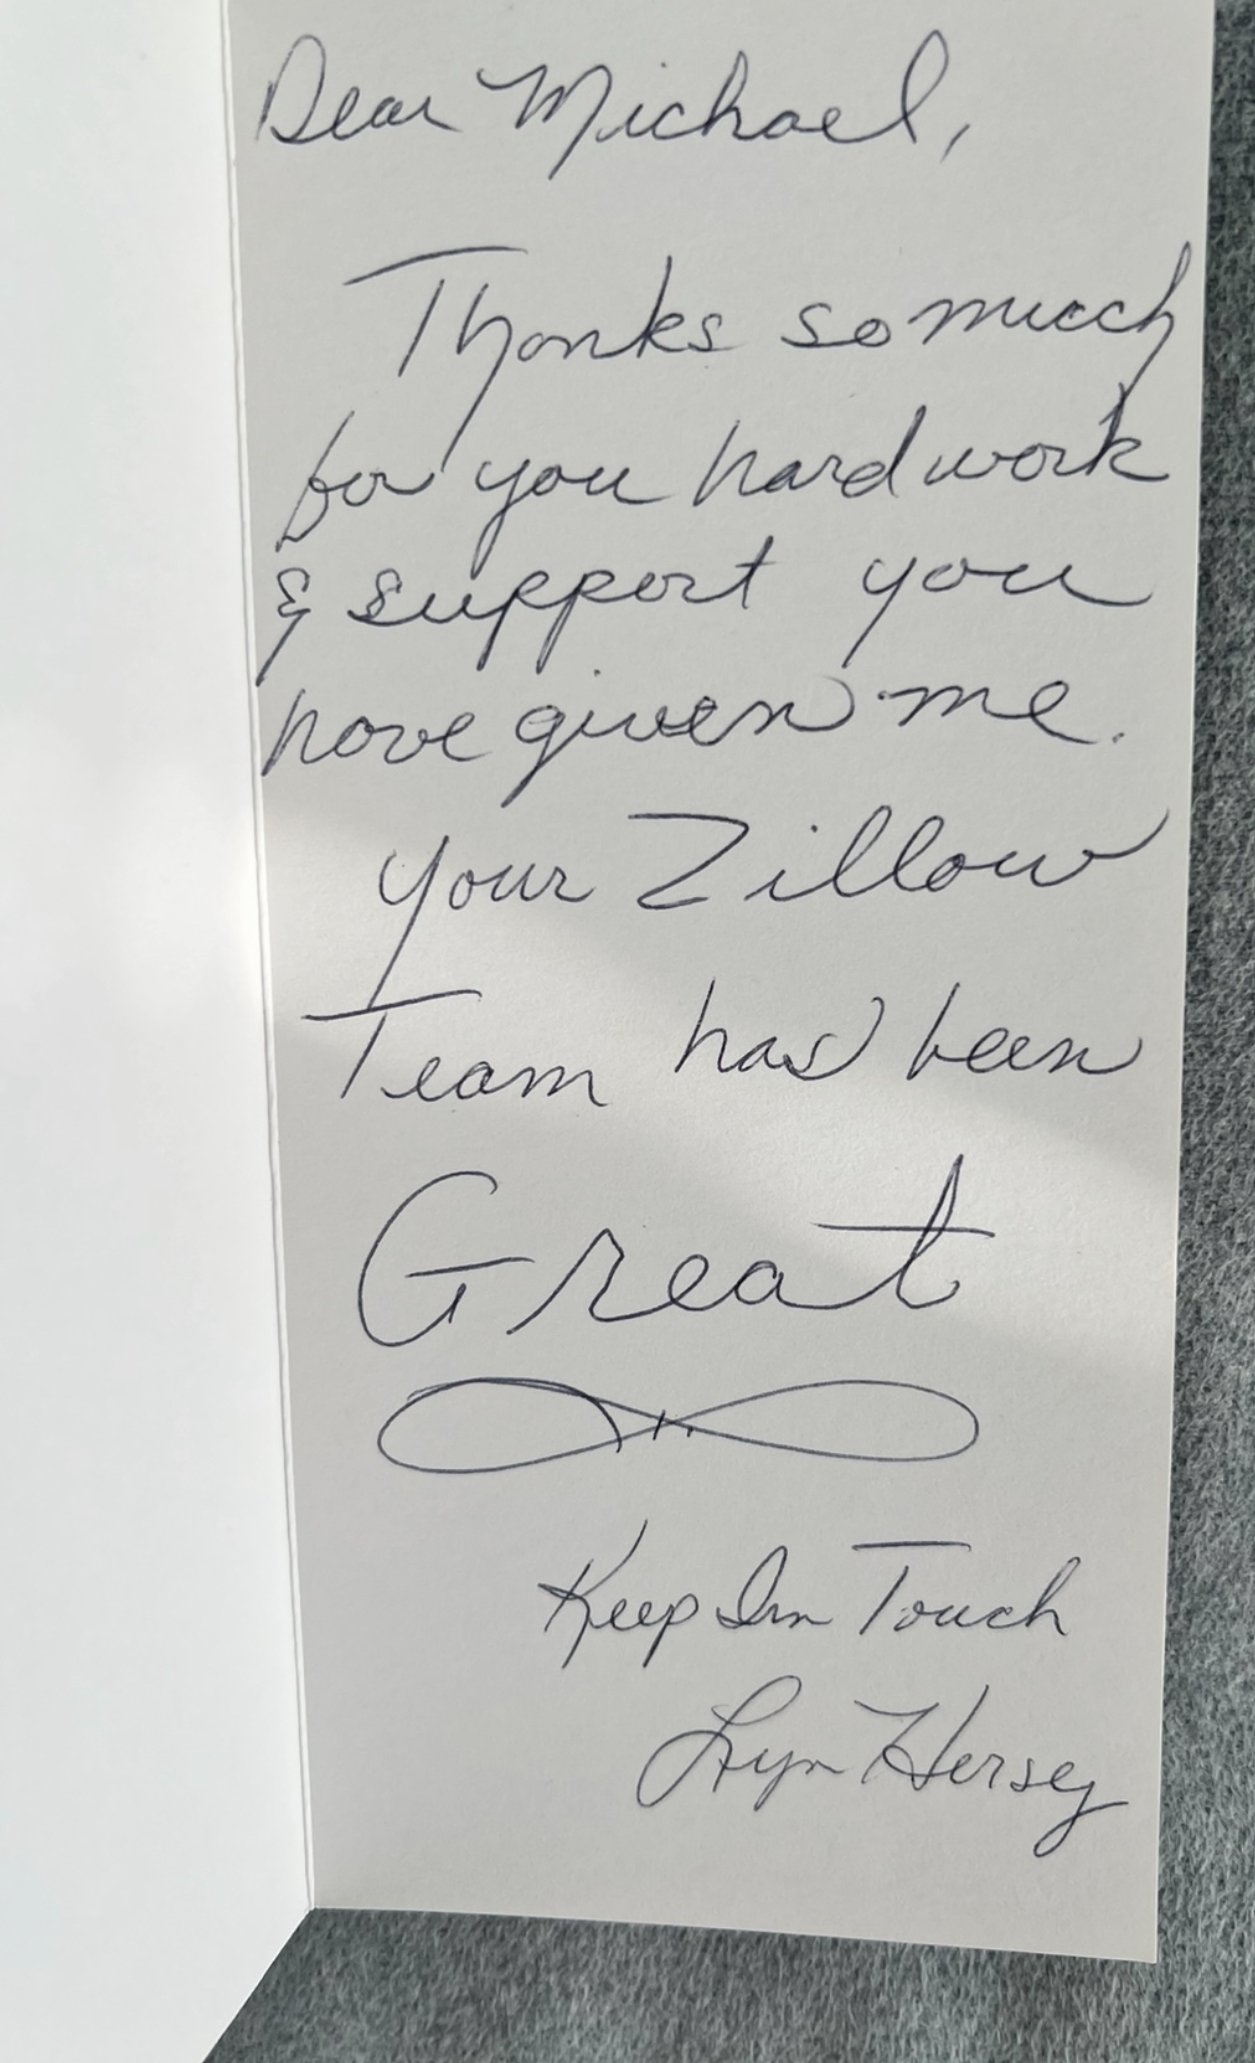 Dear Michael,
Thanks so much
for you hard work
& support you
have given me.
Your Zillow
Team has been
Great
Keep In Touch
Lyn Hersey